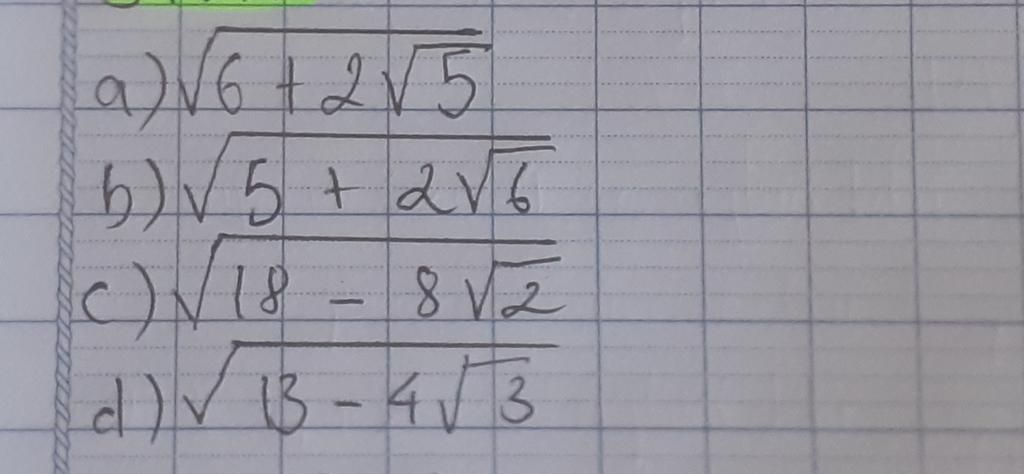 a) √(6 + 2√5)
b) √(5 + 2√6)
c) √(18 - 8√2)
d) √(13 - 4√3)